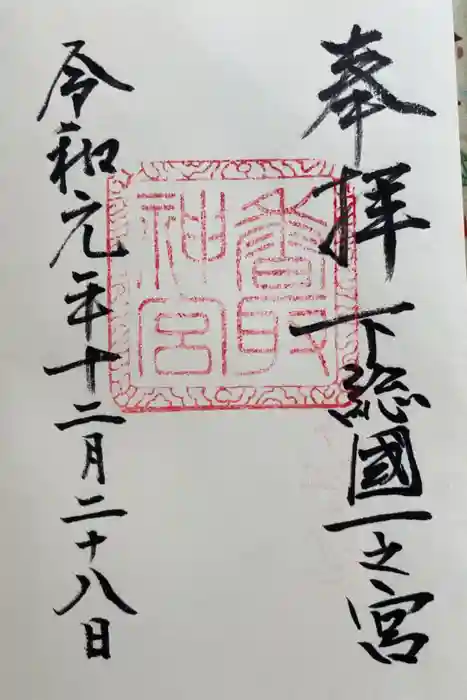 奉拝 下総國一之宮
香取神宮
令和元年十二月二十八日